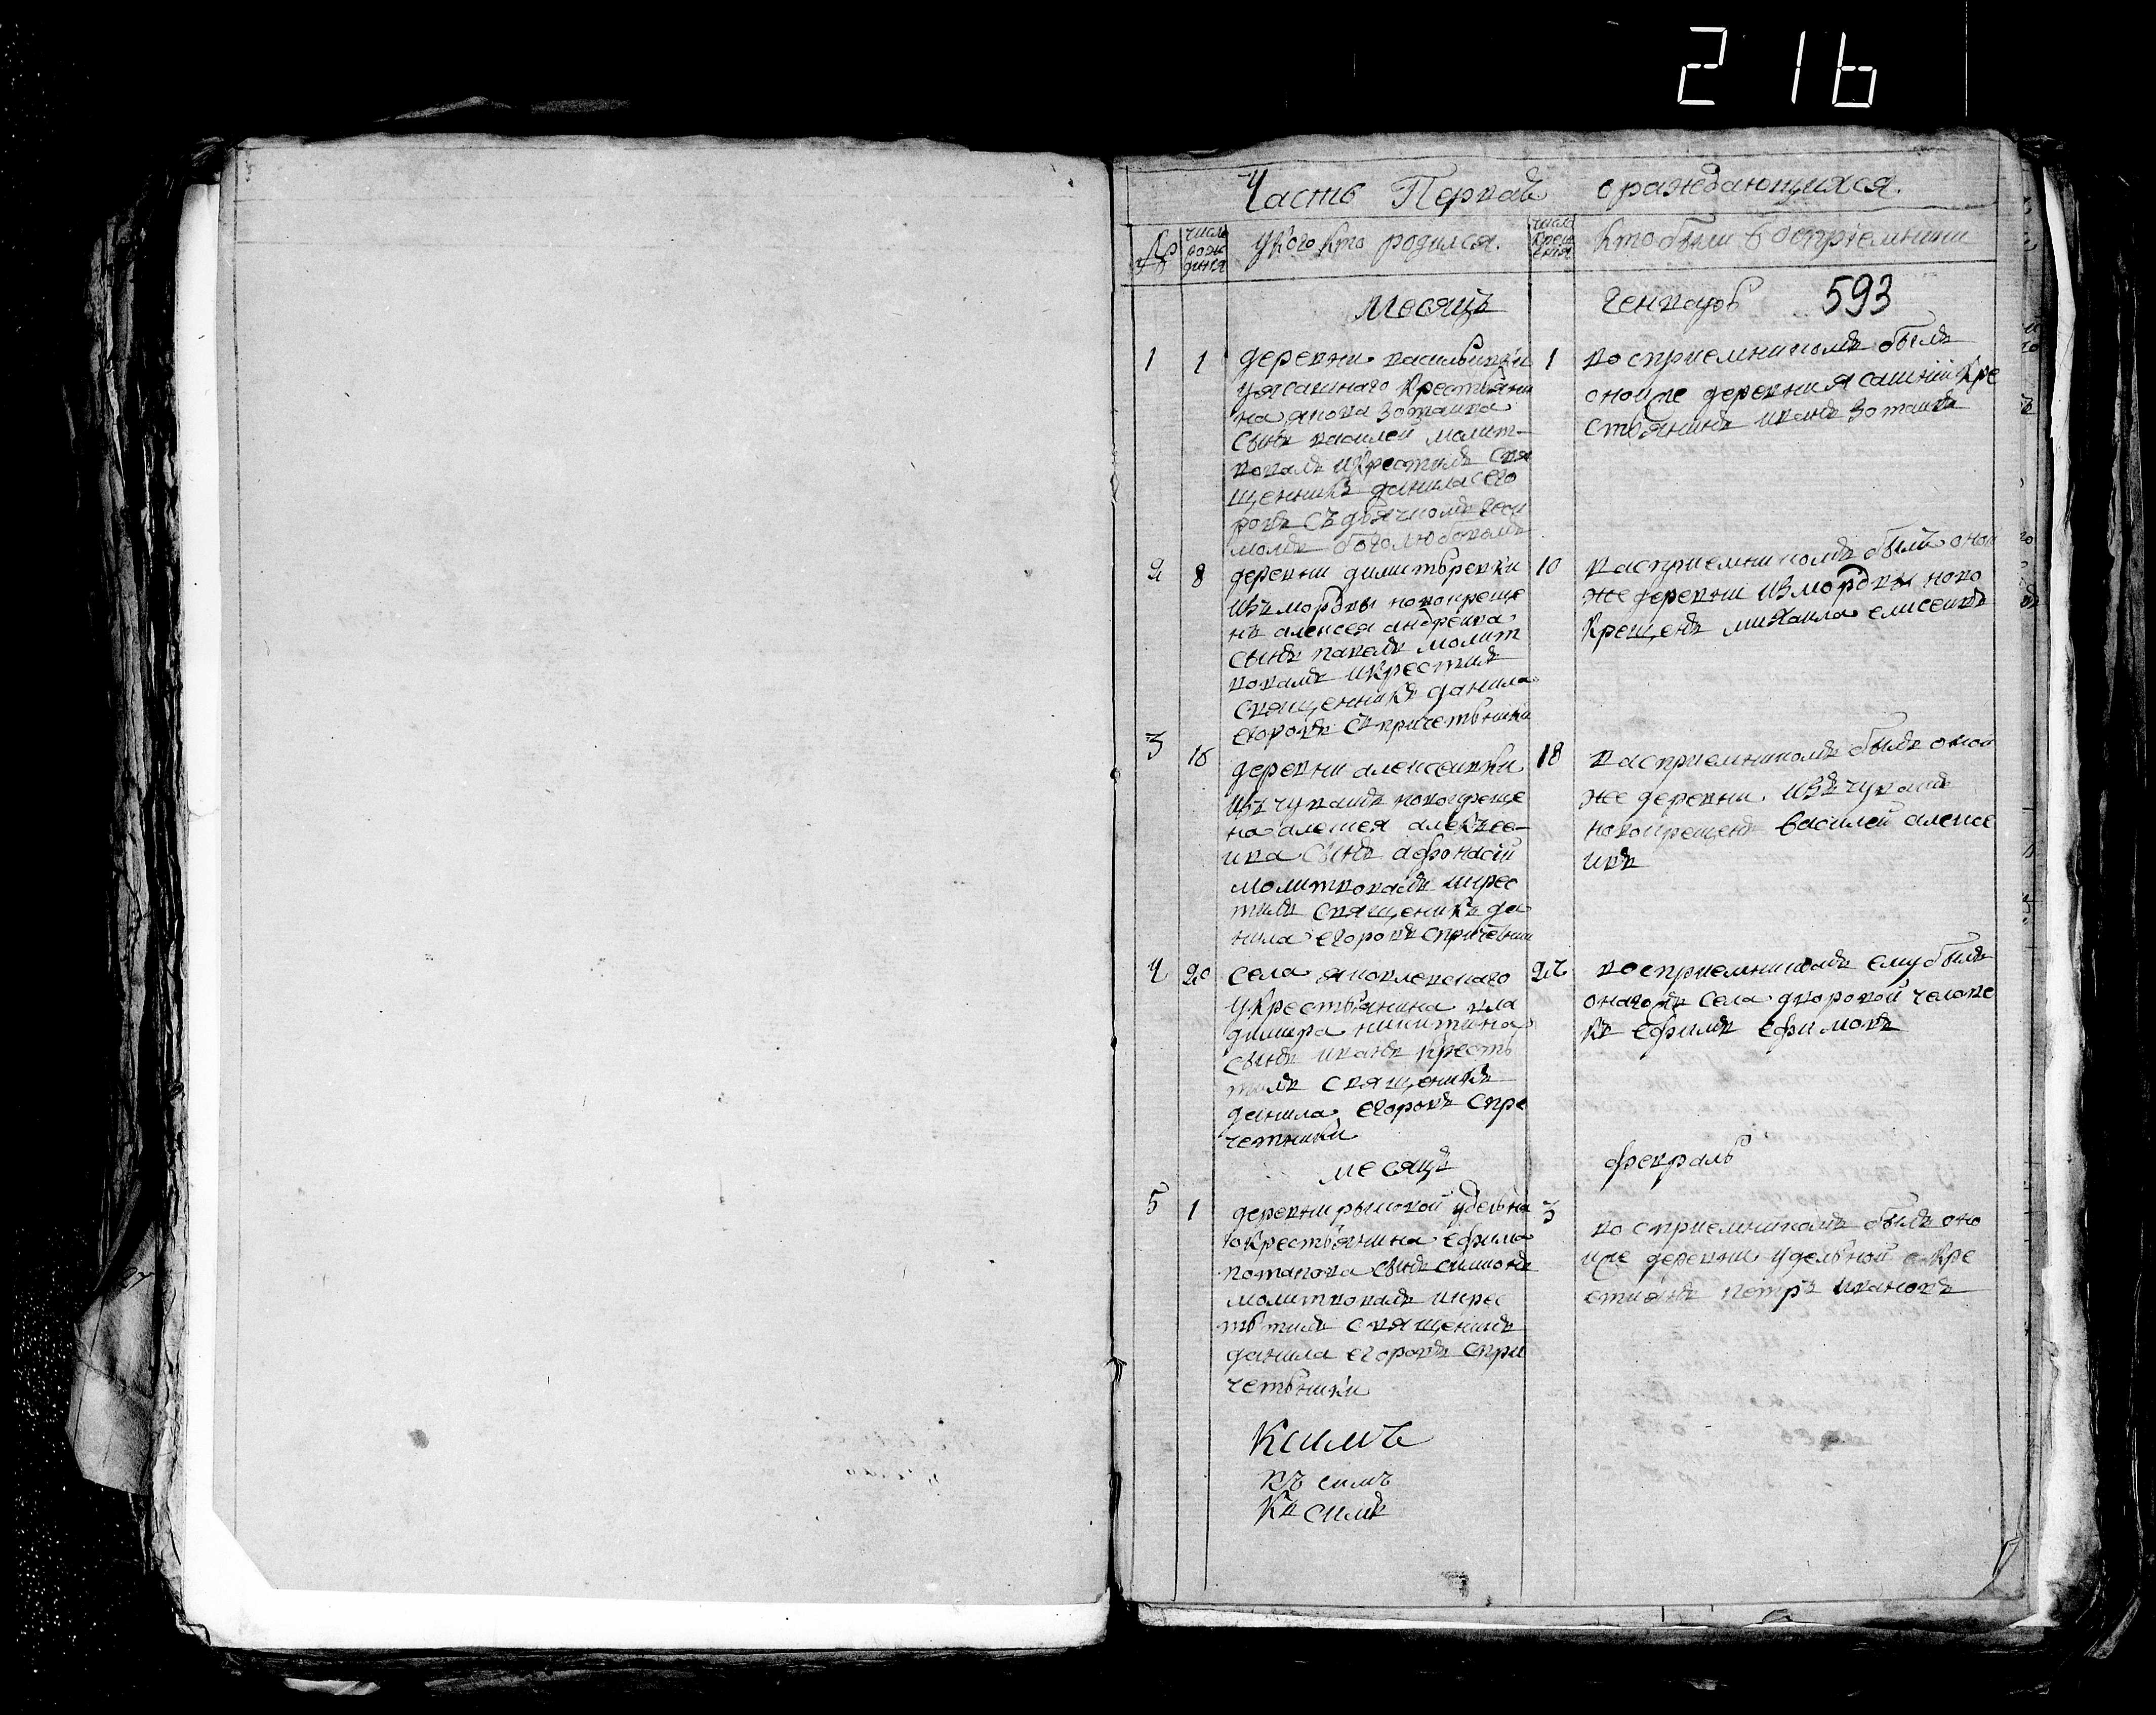 216
Часть Перваѣ о раждающихся.
№ число рождения у кого кто родился. число крещения кто были восприемники
месяцъ генварь 593
1 1 деревни васильевки 1
у ясашнаго крестьяни
на якова зотаива
сынъ василей молит-
вовалъ и крестилъ свя
щенникъ данила его
ровъ съ дьячкомъ
богомолобовомъ
восприемникомъ былъ
оной же деревни ясашний кре
стьянинъ иванъ зотаивъ
2 8 деревни димитьревки 10
изъ мордвы новокреще
нъ алексея андреива
сынъ павелъ молит
вовалъ и крестилъ
священникъ данила
егоровъ съ причетьники
васприемникомъ былъ оной
же деревни из мордвы ново
крещенъ михаила елисеивъ
3 16 деревни алексеивки 18
изъ чувашъ новокреще
на алексея алексее-
ива сынъ афонасій
молитвовалъ и крес
тилъ священикъ да
нила егоровъ с причетьники
васприемникомъ былъ оной
же деревни изъ чувашъ
новокрещенъ василей алексе
ивъ
4 20 села яковлевскаго 22
у крестьянина вла
димира никитина
сынъ иванъ кресть
тилъ священикъ
данила егоровъ с при
четники
восприемникомъ ему былъ
онагожъ села дворовой челове
къ ефимъ ефимовъ
месяцъ февраль
5 1 деревни рыковой удельна 3
го крестьянина ефима
потапова сынъ симионъ
молитвовалъ и крес
тьтилъ священикъ
данила егоровъ с при
четьники
восприемникомъ былъ оно
й же деревни удельной кре
стиянъ петръ ивановъ
Ксимъ
къ симъ
Къ симъ